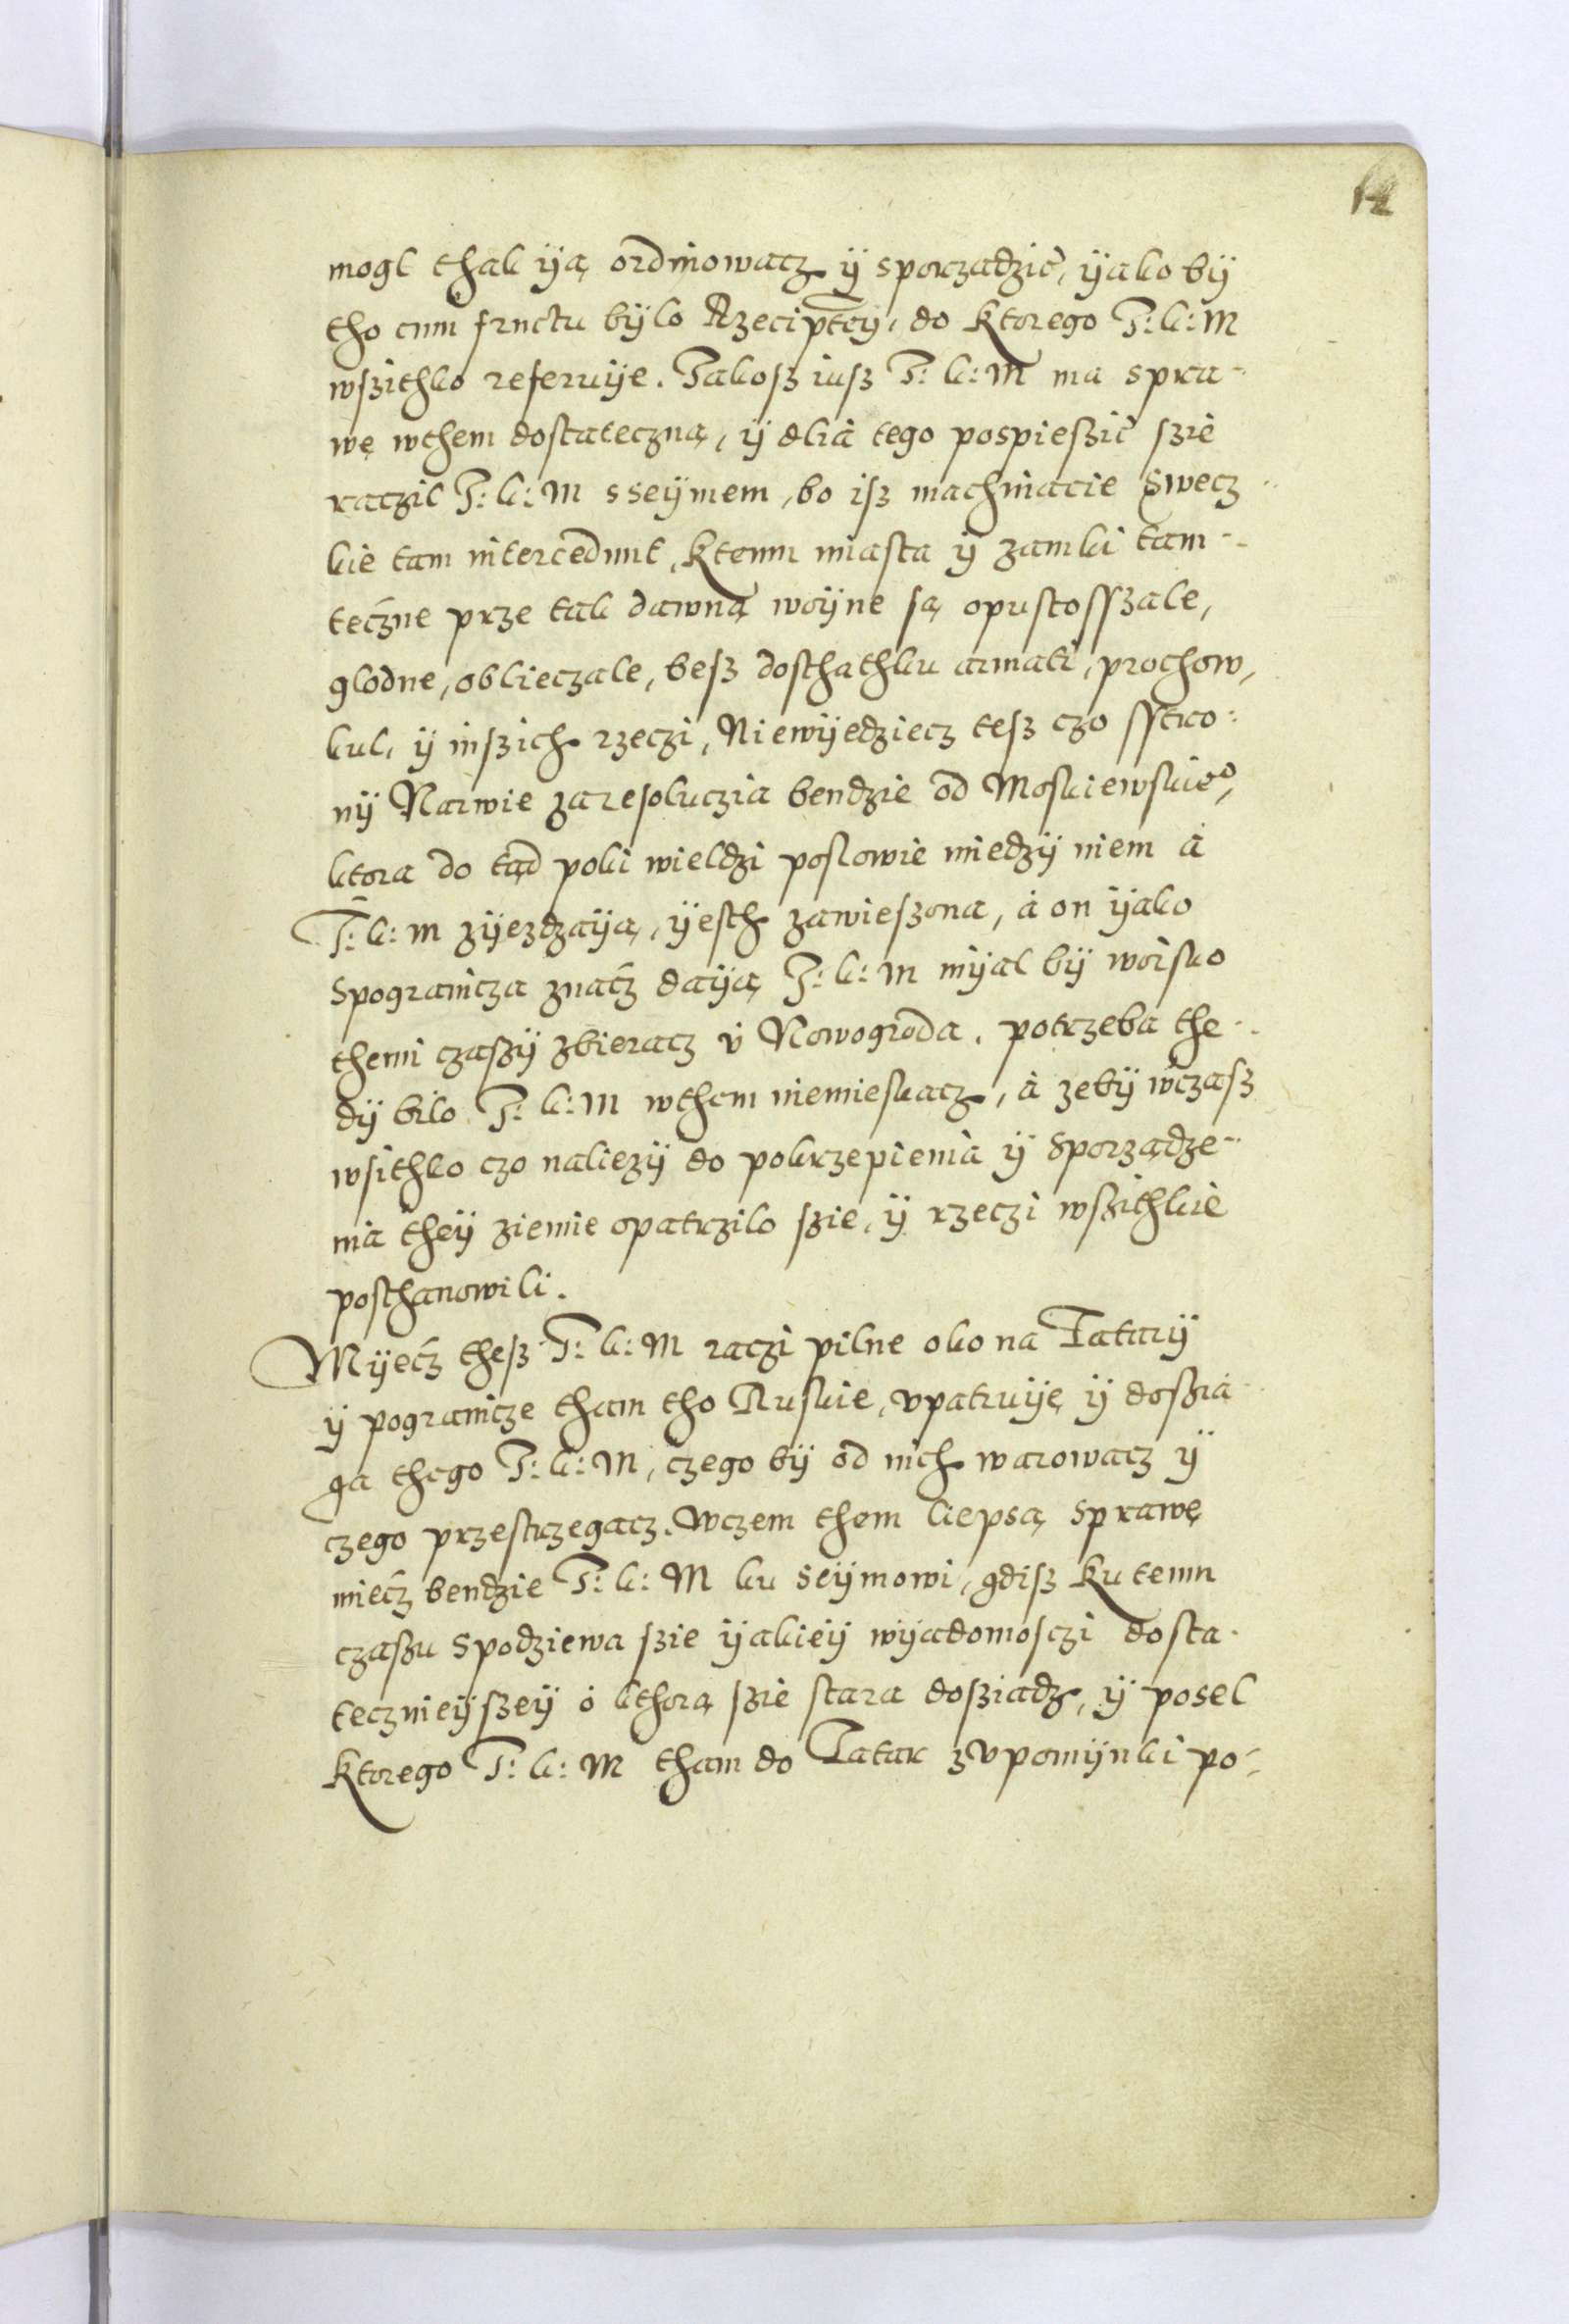 12
mogl thak ÿą ordinowacz ÿ sporzadzić, ÿako bÿ
tho cum fructu bÿlo Rzecipteÿ, do ktorego J: k: M
wszithko referuÿe. Jakosz iusz J: k: M ma spra-
wę wthem dostateczną, ÿ dlia tego pospieszić szie
raczil J: k: M sseÿmem, bo isz machinacie Swecz
kie tam intercedunt, ktemu miasta ÿ zamki tam-
teczne prze tak dawną woÿne są opustosszale,
glodne, oblieczale, besz dosthathku armati, prochow,
kul, ÿ inszich rzeczi, Niewÿedziecz tesz czo sstro-
nÿ Narwie za resoluczia bendzie od Moskiewskieo,
ktora do tąd poki wieldzi poslowie miedzÿ niem à
J: k: m zÿezdzaÿą, ÿesth zawieszona, à on ÿako
Spogranicza znacz daÿą J: k: m mÿal bÿ woisko
themi czaszÿ zbieracz ù Nowogroda. potrzeba the-
dÿ bilo J: k: M wthem niemieskacz, à zebÿ wczasz
wsithko czo naliezÿ do pokrzepienia ÿ Sporządze-
nia theÿ ziemie opatrzilo szie, ÿ rzeczi wszithkie
posthanowili.
Mÿecz thesz J: k: M raczi pilne oko na Tatarÿ
ÿ pogranicze tham tho Ruskie, vpatruÿe ÿ doszia-
ga thego J: k: M, czego bÿ od nich warowacz ÿ
czego przestrzegacz. Wczem them liepsą sprawę
miecz bendzie J: k: M ku seÿmowi, gdisz ku temu
czaszu spodziewa szie ÿakieÿ wÿadomosczi dosta-
tecznieÿszeÿ ò kthorą szie stara dosziadz, ÿ posel
ktorego J: k: M tham do Tatar zvpomÿnki po-